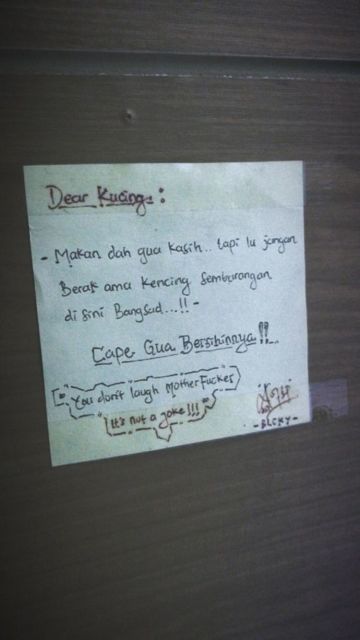 Dear Kucing :
- Makan dah gua kasih.. tapi lu jangan
Berak ama kencing Sembarangan
di sini Bangsad...!! -
Cape Gua Bersihinnya!!
You don't laugh MotherFucker
It's not a joke!!!
- BLCKY -